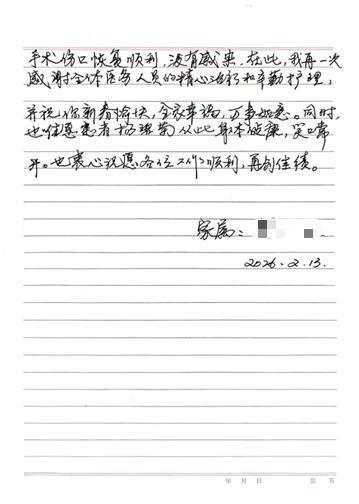 手术伤口恢复顺利，没有感染。在此，我再一次
感谢全体医务人员的精心治疗和辛勤护理，
并祝你新春愉快，全家幸福，万事如意。同时，
也住愿患者杨 从此身体健康，笑口常
开。也衷心祝愿各位工作顺利，再创佳绩。
家属：
2026.2.13.
年 月 日 第 页